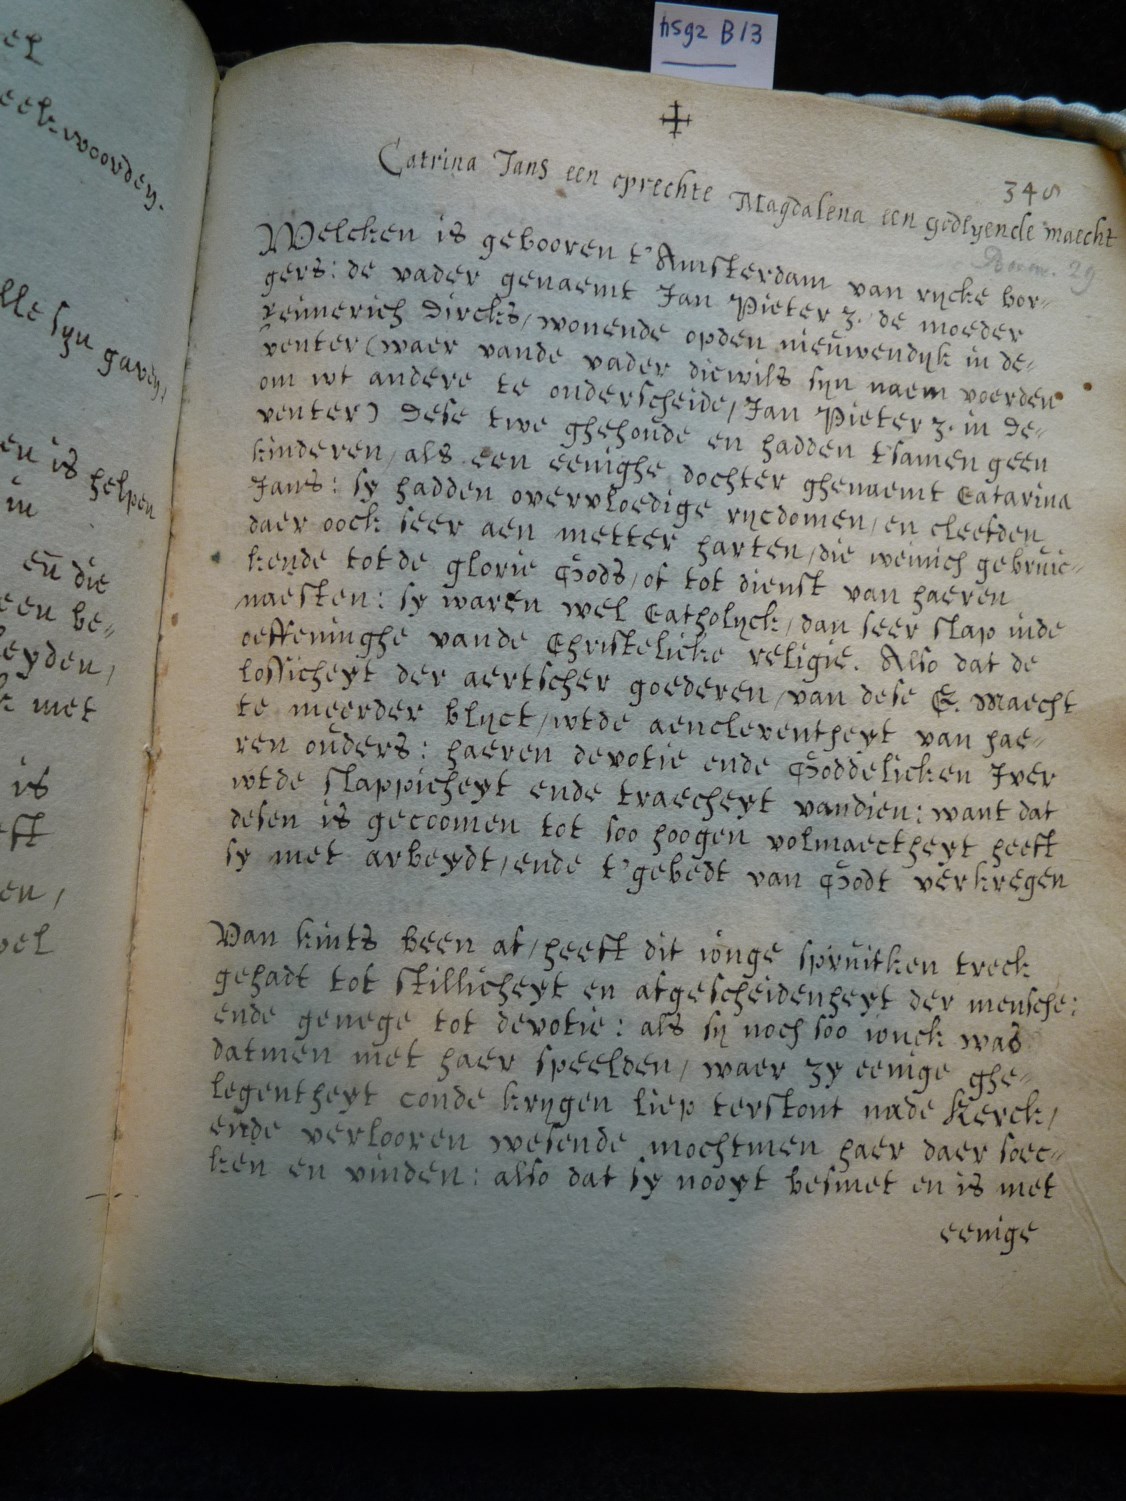 hsg2 B13
345
Catrina Jans een oprechte Magdalena een godtyende maecht
Welcken is gebooren t'Amsterdam van rycke bor-
gers: de vader genaemt Jan Pieter z. de moeder
Reimerich Dircks, wonende opden nieuwendyk in de-
venter (waer vande vader diewils syn naem voerden
om wt andere te onderscheide, Jan Pieter z. in De-
venter) Dese twe ghehoude en hadden t'samen geen
kinderen, als een eenighe dochter ghenaemt Catarina
Jans: sy hadden overvloedige rycdomen, en cleefden
daer oock seer aen metter harten, die weinich gebruic-
kende tot de glorie Gods, of tot dienst van haeren
naesten: sy waren wel Catholyck, dan seer slap inde
oeffeninghe vande Christelicke religie. Also dat de
lossicheyt der aertscher goederen, van dese E. Maecht
te meerder blyct, wtde aencleventheyt van hae-
ren ouders: haeren devotie ende Goddelicken Iver
wtde slappicheyt ende traecheyt vandien: want dat
desen is gecoomen tot soo hoogen volmaectheyt heeft
sy met arbeydt, ende t'gebedt van Godt verkregen
Van kints been af, heeft dit ionge spruitken treck
gehadt tot stillicheyt en afgescheidenheyt der mensche:
ende genege tot devotie: als sy noch soo ionck was
datmen met haer speelden, waer zy eenige ghe-
legentheyt conde krygen liep terstont nade Kerck,
ende verlooren wesende mochtmen haer daer soec-
ken en vinden: also dat sy nooyt besmet en is met
eenige